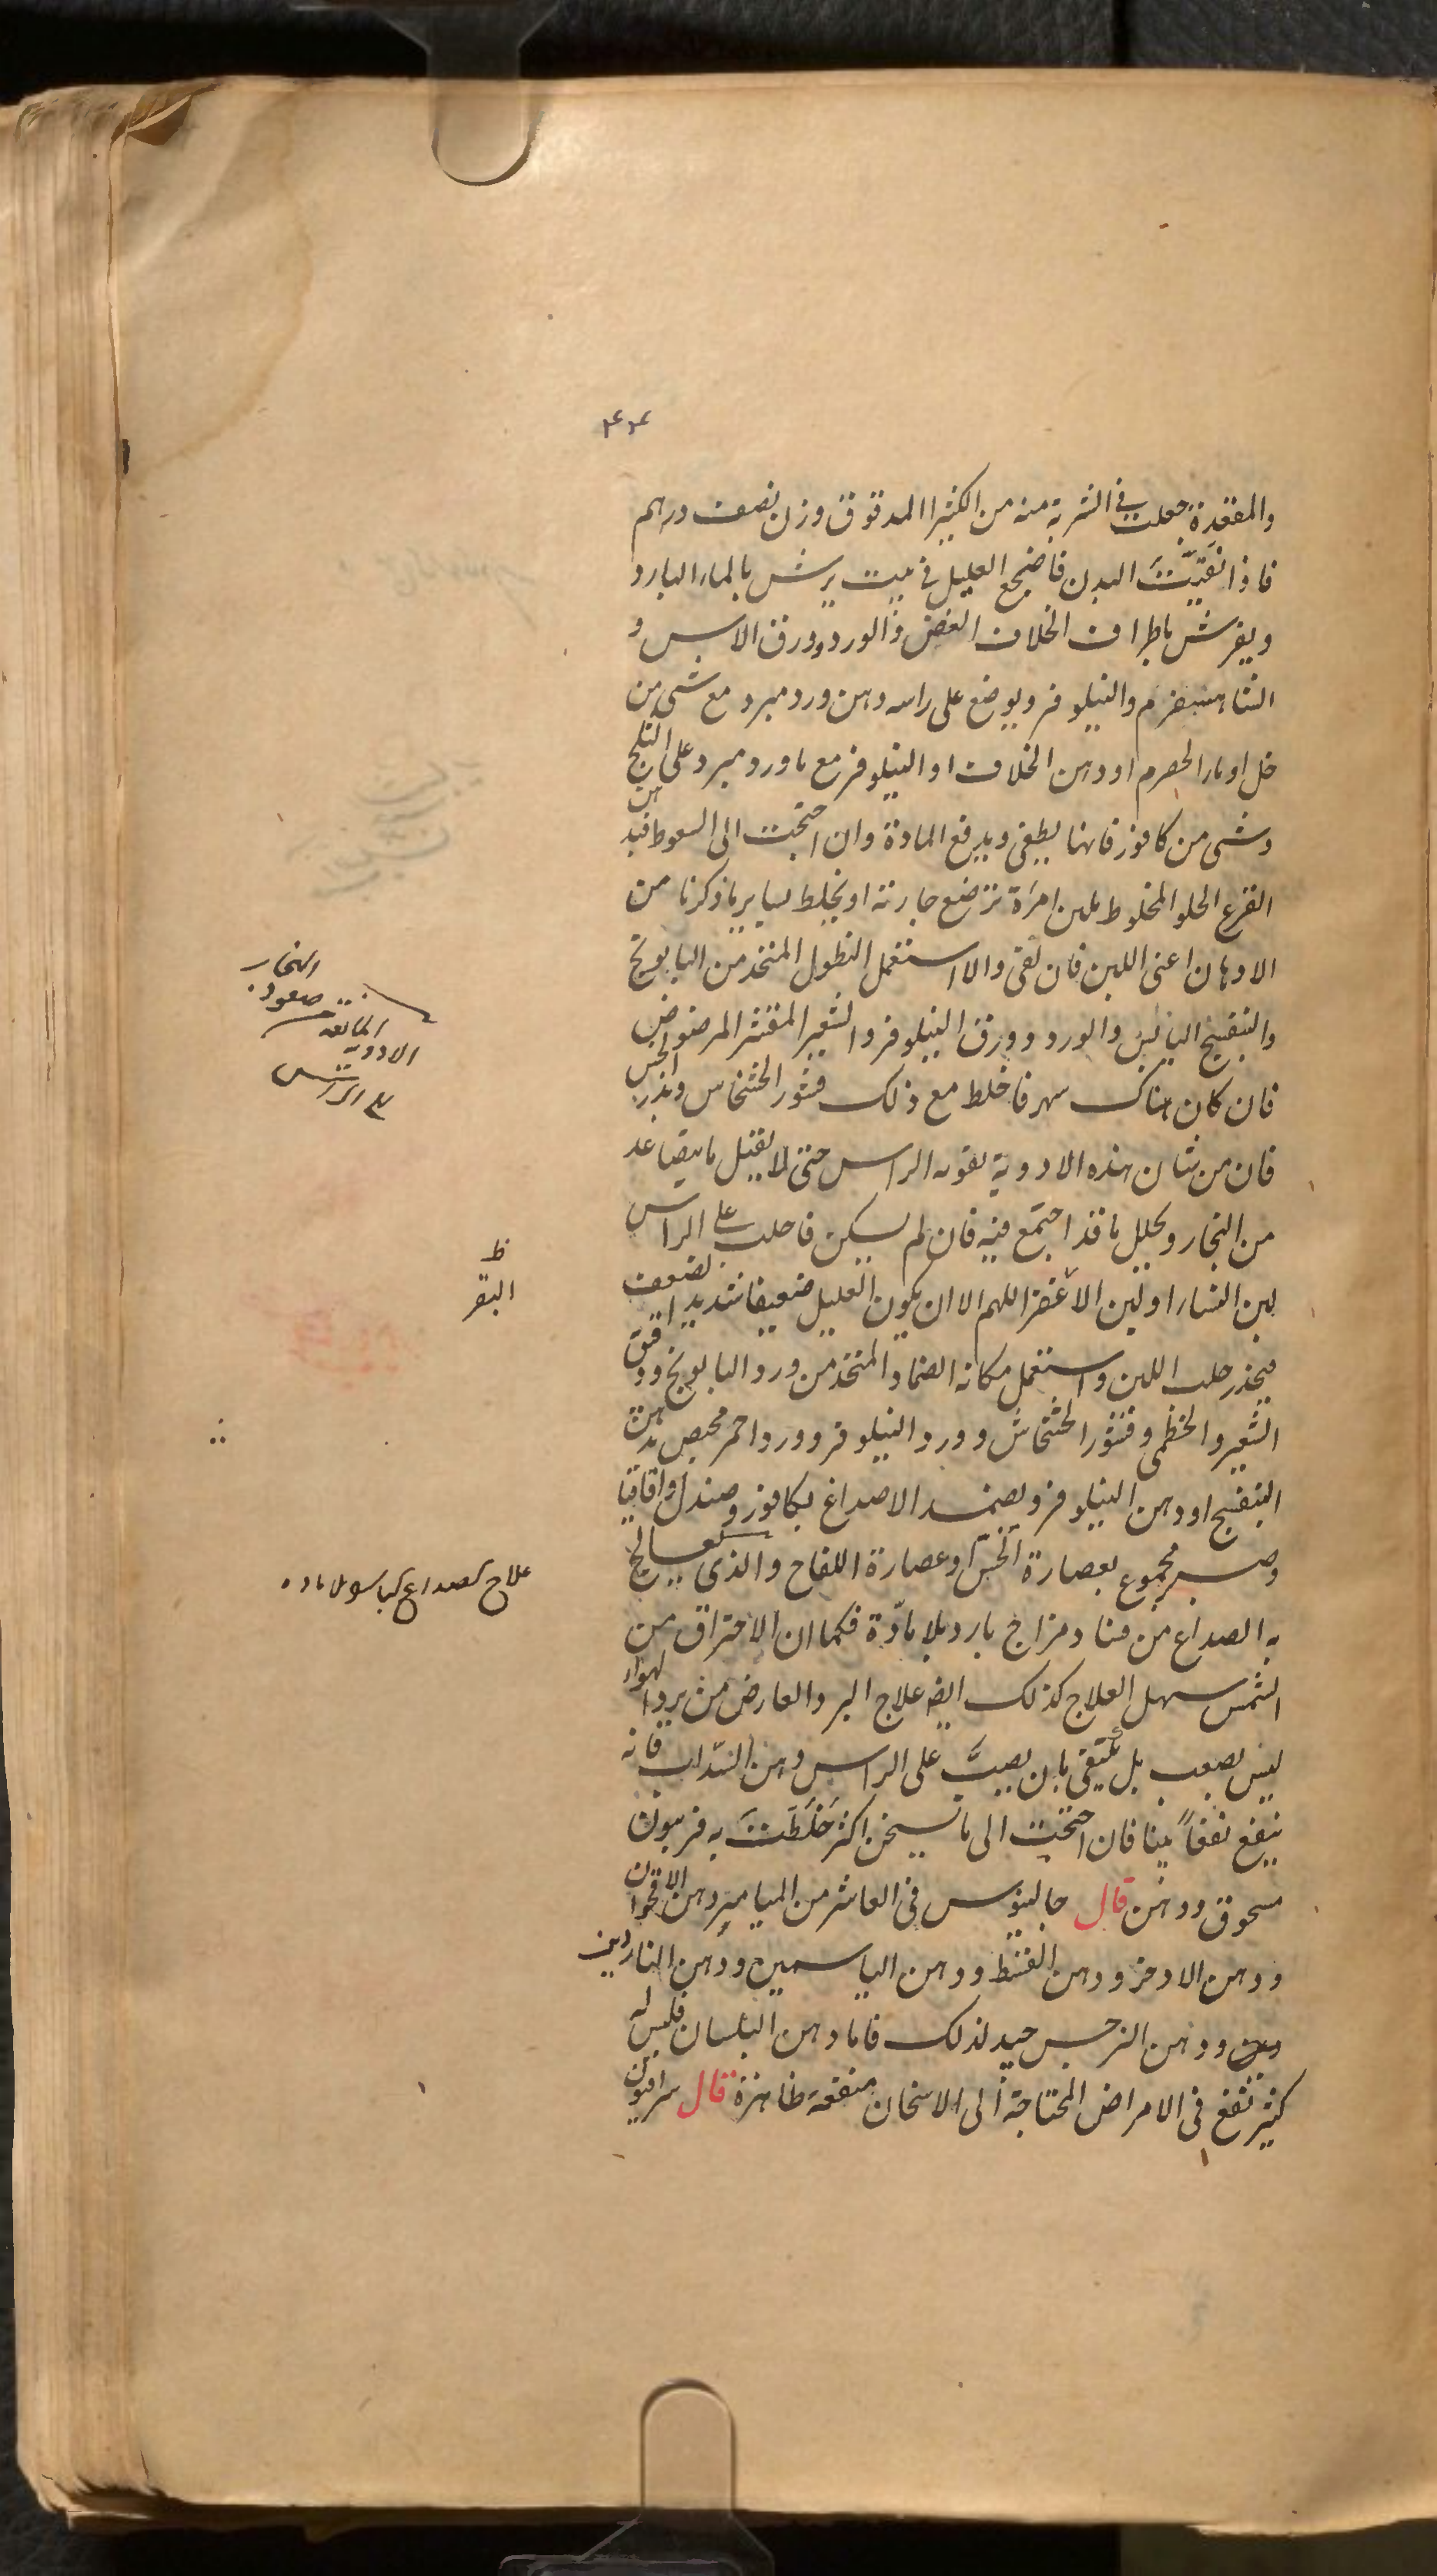 ۴۲
والمقعدة جعلت في الشربة منه من الكثيرا المدقوق وزن نصف درهم
فاذا نقَّيتَ البدن فاضجع العليل في بيت يرش بالماء البارد
ويفرش باطراف الخلاف الغض والورد وورق الاس و
الشاهسفرم والنيلوفر ويوضع على راسه دهن ورد مبرد مع شى من
خل او ماء الحصرم او دهن الخلاف او النيلوفر مع ماورد مبرد على الثلج
وشى من كافور فانها يطفى ويدفع المادة وان احتجت الى السعوط فبدهن
القرع الحلو المخلوط بلبن امرَاة ترضع جارية او يخلط بساير ما ذكرنا من
الادهان اعنى اللبن فان نقى والا استعمل النطول المتخذ من البابونج
والبنفسج اليابس والورد وورق النيلوفر والشعير المقشر المرضوض
فان كان هناك سهر فاخلط مع ذلك قشور الخشخاش وبذر الخس
فان من شان هذه الادوية تقوية الراس حتى لا يقبل ما يتصاعد
من البخار ويحلل ما قد اجتمع فيه فان لم يسكن فاحلب على الراس
لبن النساء او لبن الاعنز اللهم الا ان يكون العليل ضعيفا شديد الضعف
فيحذر حلب اللبن واستعمل مكانه الضماد المتخذ من ورد البابونج ودقيق
الشعير والخطمى وقشور الخشخاش وورد النيلوفر وورد احمر محبص بدهن
البنفسج او دهن النيلوفر ويضمد الاصداغ بكافور وصندل واقاقيا
وصبر مجموع بعصارة الخسّ او عصارة اللفاح والذى يعالج
به الصداع من فساد مزاج بارد بلا مادّة فكما ان الاحتراق من
الشمس سهل العلاج كذلك ايضا علاج البرد العارض من برد الهواء
ليس بصعب بل يُكتفى بان يصبَّ على الراس دهن السّداب فانه
ينفع نفعاً بينا فان احتجت الى ما يسخن اكثر خَلَطَتَ به فربيون
مسحوق ودهن قال جالينوس في العاشر من الميامير دهن الاقحوان
ودهن الاذخر ودهن القسط ودهن الياسمين ودهن الناردين
ودهن النرجس جيد لذلك فاما دهن البلسان فليس له
كثير نفع في الامراض المحتاجة الى الاسخان منفعة ظاهرة قال سرافيون
البخار
صعود
المانعة
الادوية
الى الراس
ظ
البقر
علاج الصداع